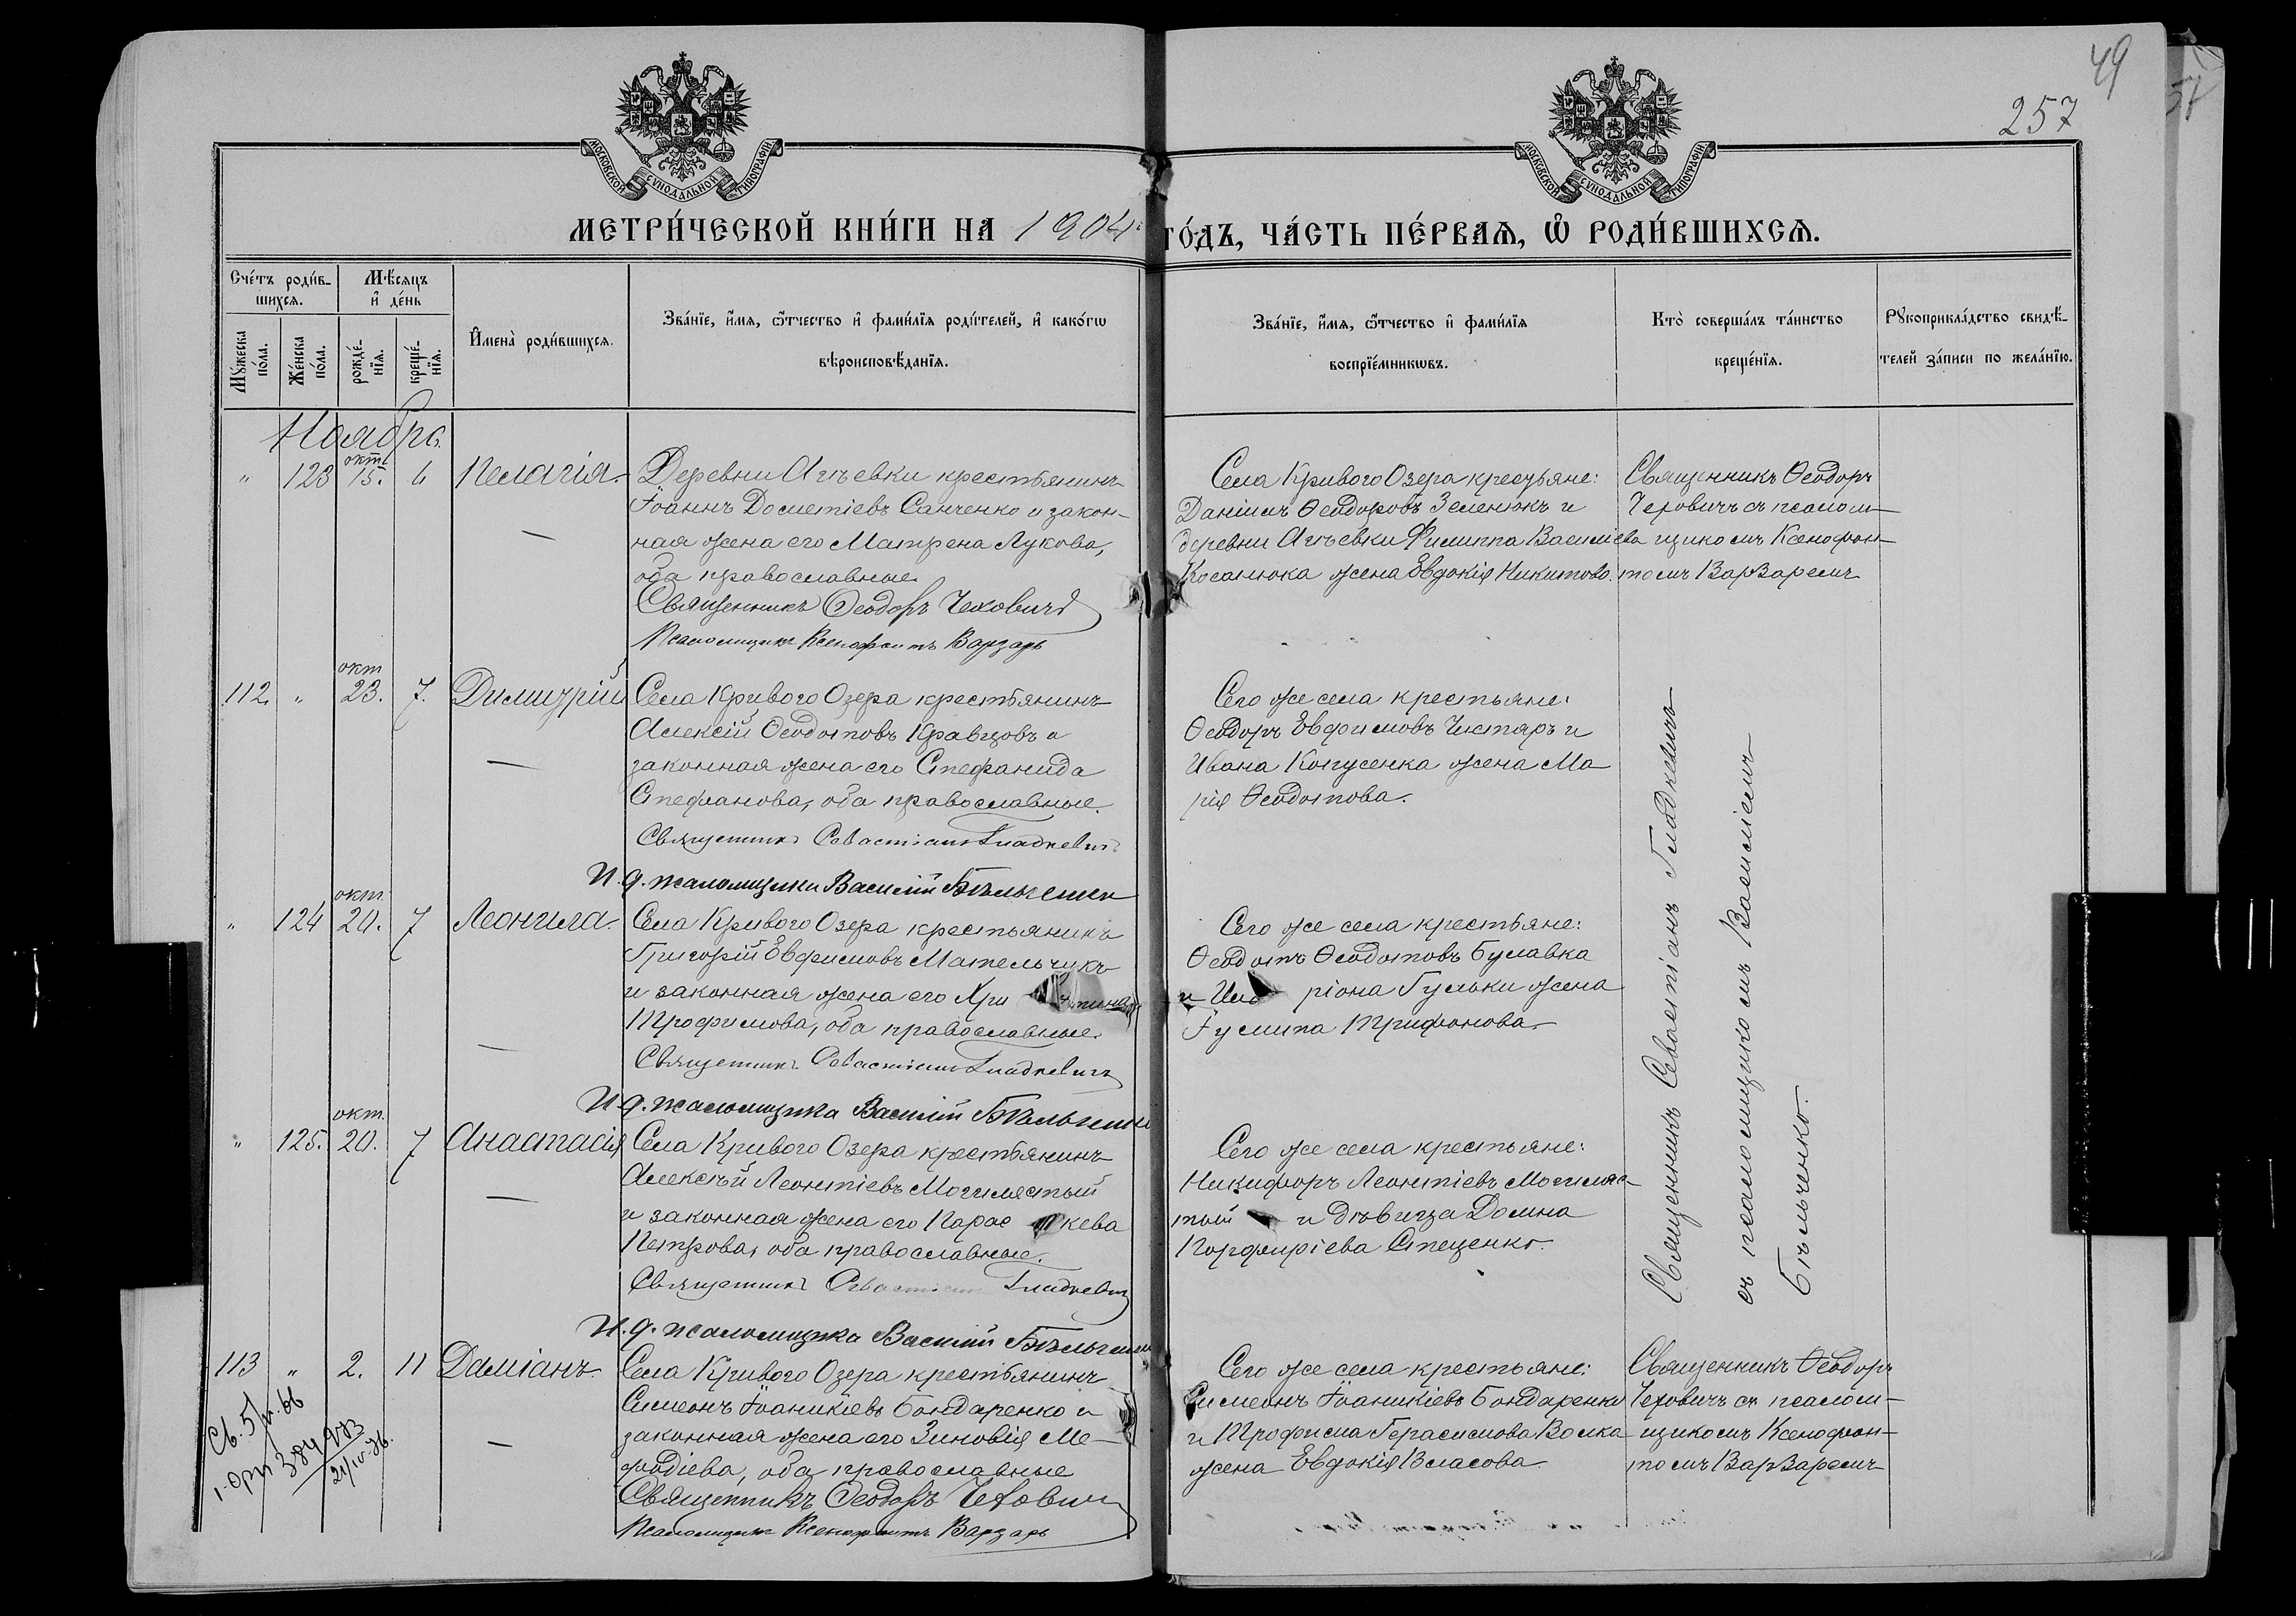 49
257
МОСКОВСКОЙ СУНОДАЛЬНОЙ ТИПОГРАФІИ
МОСКОВСКОЙ СУНОДАЛЬНОЙ ТИПОГРАФІИ
МЕТРИ́ЧЕСКОЙ КНИ́ГИ НА 1904
ГО́ДЪ, ЧА́СТЬ ПЕ́РВАѦ, Ѡ҆ РОДИ́ВШИХСѦ.
Сче́тъ роди́в-
шихсѧ.
Мꙋ́жеска по́ла.
Же́нска по́ла.
Мѣ́сѧцъ и҆ де́нь
рожде́-нїѧ.
креще́-нїѧ.
И҆мена̀ роди́вшихсѧ.
Зва́нїе, и҆́мѧ, ѻ҆́тчество и҆ фами́лїѧ роди́телей, и҆ како́гѡ
вѣроисповѣ́данїѧ.
Зва́нїе, и҆́мѧ, ѻ҆́тчество и҆ фами́лїѧ
воспрїе́мникѡвъ.
Кто̀ соверша́лъ та́инство
креще́нїѧ.
Рꙋкоприкла́дство свидѣ́-
телей за́писи по жела́нїю.
Ноябрь
" 123 окт. 15. 6 Пелагія.
Деревни Агѣевки крестьянинъ
Іоаннъ Дометіевъ Санченко и закон-
ная жена его Матрена Лукова,
оба православные.
Священникъ Ѳеодоръ Чеховичъ
Псаломщикъ Ксенофонтъ Варзарь
Села Кривого Озера крестьяне:
Даніилъ Ѳеодоровъ Зеленюкъ и
деревни Агѣевки Филиппа Василіева
Косанюка жена Евдокія Никитова.
Священникъ Ѳеодоръ
Чеховичъ съ псалом-
щикомъ Ксенофон-
томъ Варзаремъ
112. " окт 23. 7. Димитрій
Села Кривого Озера крестьянинъ
Алексій Ѳеодотовъ Кравцовъ и
законная жена его Стефанида
Стефанова, оба православные.
Священникъ Севастіанъ Гладкевичъ
И. д. псаломщика Василій Бѣльченко
Сего же села крестьяне:
Ѳеодоръ Евфимовъ Чистяръ и
Ивана Копусенка жена Ма-
рія Ѳеодотова.
" 124 окт. 20. 7 Леонгила.
Села Кривого Озера крестьянинъ
Григорій Евфимовъ Мательчикъ
и законная жена его Христина
Трофимова, оба православные.
Священникъ Севастіанъ Гладкевичъ
И. д. псаломщика Василій Бѣльченко
Сего же села крестьяне:
Ѳеодотъ Ѳеодотовъ Булавка
и Иларіона Гульки жена
Гусмипа Трифонова.
" 125. окт. 20. 7 Анастасія
Села Кривого Озера крестьянинъ
Алексѣй Леонтіевъ Могилястый
и законная жена его Параскева
Петрова, оба православные.
Священникъ Севастіанъ Гладкевичъ
И. д. псаломщика Василій Бѣльченко
Сего же села крестьяне:
Никифоръ Леонтіевъ Могиляс-
тый и дѣвица Домна
Порфиріева Стеценко.
Священникъ Севастіанъ Гладкевичъ
съ псаломщикомъ Василіемъ
Бѣльченко.
113 " 2. 11 Даміанъ.
Села Кривого Озера крестьянинъ
Симеонъ Іоаникіевъ Бондаренко и
законная жена его Зиновія Ме-
фодіева, оба православные
Священникъ Ѳеодоръ Чеховичъ
Псаломщикъ Ксенофонтъ Варзарь
Сего же села крестьяне:
Симеонъ Іоаникіевъ Бондаренко
и Трофима Герасимова Волка
жена Евдокія Власова
Священникъ Ѳеодоръ
Чеховичъ съ псалом-
щикомъ Ксенофон-
томъ Варзаремъ